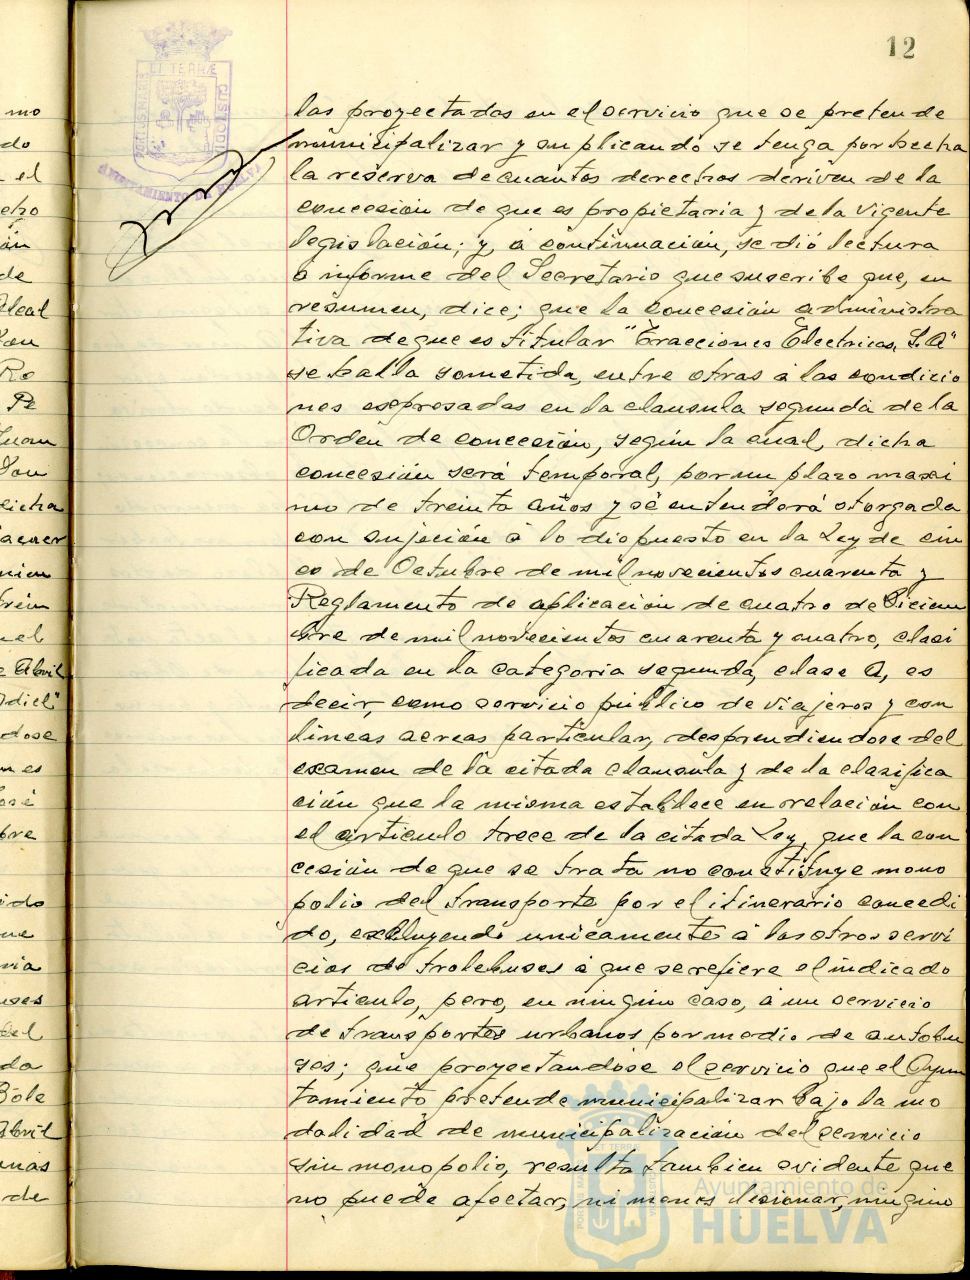 12
las proyectadas en el servicio que se pretende
municipalizar y suplicando se tenga por hecha
la reserva de cuantos derechos deriven de la
concesión de que es propietaria y de la vigente
legislación; y, a continuación, se dió lectura
a informe del Secretario que suscribe que, en
resumen, dice; que la concesión administra
tiva de que es titular "Tracciones Electricas, S.A"
se halla sometida, entre otras a las condicio
nes expresadas en la clausula segunda de la
Orden de concesión, según la cual, dicha
concesión será temporal, por un plazo maxi
mo de treinta años y se entenderá otorgada
con sujeción a lo dispuesto en la Ley de cin
co de Octubre de mil novecientos cuarenta y
Reglamento de aplicación de cuatro de Diciem
bre de mil novecientos cuarenta y cuatro, clasi
ficada en la categoria segunda, clase A, es
decir, como servicio publico de viajeros y con
lineas aereas particular, desprendiendose del
examen de la citada clausula y de la clasifica
ción que la misma establece en relación con
el articulo trece de la citada Ley, que la con
cesión de que se trata no constituye mono
polio del transporte por el itinerario concedi
do, excluyendo unicamente a los otros servi
cios de trolebuses a que se refiere el indicado
articulo, pero, en ningun caso, a un servicio
de transportes urbanos por medio de autobu
ses; que proyectandose el servicio que el Ayun
tamiento pretende municipalizar bajo la mo
dalidad de municipalización del servicio
sin monopolio, resulta tambien evidente que
no puede afectar, ni menos lesionar, ningun
LI TERRÆ
PORTUS MARIS
CUSTODIA
AYUNTAMIENTO DE HUELVA
Ayuntamiento de
HUELVA